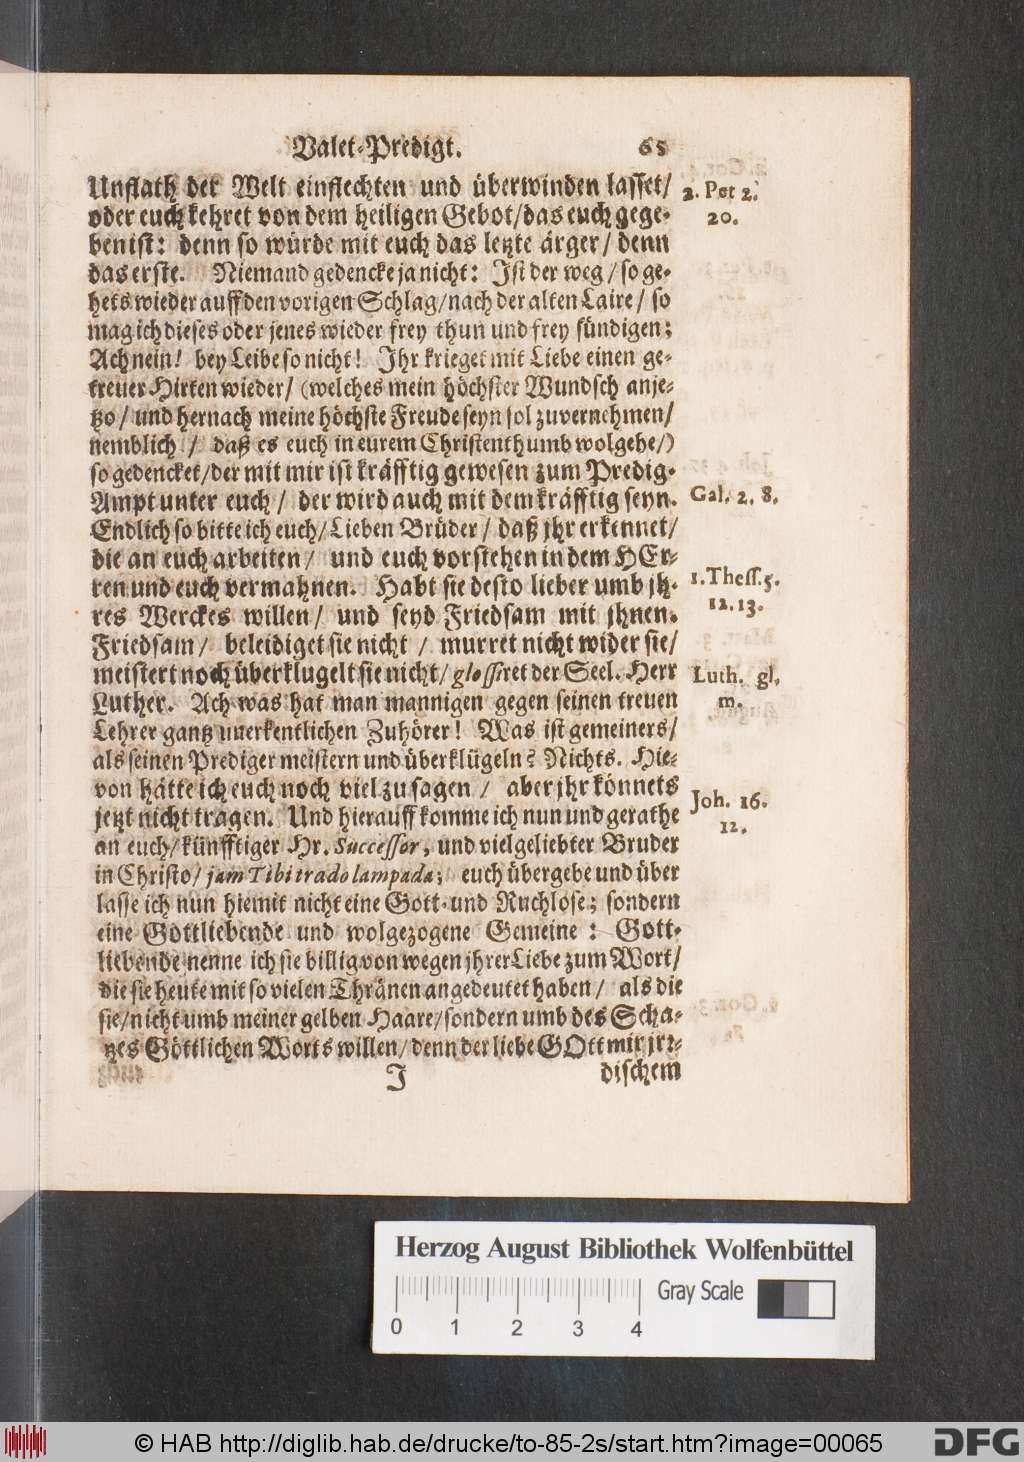 Valet-Predigt. 65
Unflath der Welt einflechten und überwinden lasset/
oder euch kehret von dem heiligen Gebot/das euch gege-
ben ist: denn so würde mit euch das letzte ärger/ denn
das erste. Niemand gedencke ja nicht: Ist der weg/ so ge-
hets wieder auff den vorigen Schlag/nach der alten Laire/ so
mag ich dieses oder jenes wieder frey thun und frey sündigen;
Ach nein! bey Leibe so nicht! Ihr krieget mit Liebe einen ge-
treuer Hirten wieder/ (welches mein höchster Wundsch anje-
tzo/ und hernach meine höchste Freude seyn sol zuvernehmen/
nemblich/ daß es euch in eurem Christenthumb wolgehe/)
so gedencket/der mit mir ist kräfftig gewesen zum Predig-
Ampt unter euch/ der wird auch mit dem kräfftig seyn.
Endlich so bitte ich euch/Lieben Brüder/ daß jhr erkennet/
die an euch arbeiten/ und euch vorstehen in dem HEr-
ren und euch vermahnen. Habt sie desto lieber umb jh-
res Werckes willen/ und seyd Friedsam mit jhnen.
Friedsam/ beleidiget sie nicht/ murret nicht wider sie/
meistert noch überklugelt sie nicht/ glossiret der Seel. Herr
Luther. Ach was hat man mannigen gegen seinen treuen
Lehrer gantz unerkentlichen Zuhörer! Was ist gemeiners/
als seinen Prediger meistern und überklügeln? Nichts. Hie-
von hätte ich euch noch viel zu sagen/ aber jhr könnets
jetzt nicht tragen. Und hierauff komme ich nun und gerathe
an euch/künfftiger Hr. Successor, und vielgeliebter Bruder
in Christo/ jam Tibi trado lampada; euch übergebe und über
lasse ich nun hiemit nicht eine Gott- und Ruchlose; sondern
eine Gottliebende und wolgezogene Gemeine: Gott-
liebende nenne ich sie billig von wegen jhrer Liebe zum Wort/
die sie heute mit so vielen Thränen angedeutet haben/ als die
sie/nicht umb meiner gelben Haare/sondern umb des Scha-
tzes Göttlichen Worts willen/denn der liebe GOtt mir jrr-
I dischem
2. Pet 2.
20.
Gal. 2. 8.
1. Thess. 5.
12. 13.
Luth. gl.
m.
Joh. 16.
12.
Herzog August Bibliothek Wolfenbüttel
0 1 2 3 4
Gray Scale
© HAB http://diglib.hab.de/drucke/to-85-2s/start.htm?image=00065
DFG